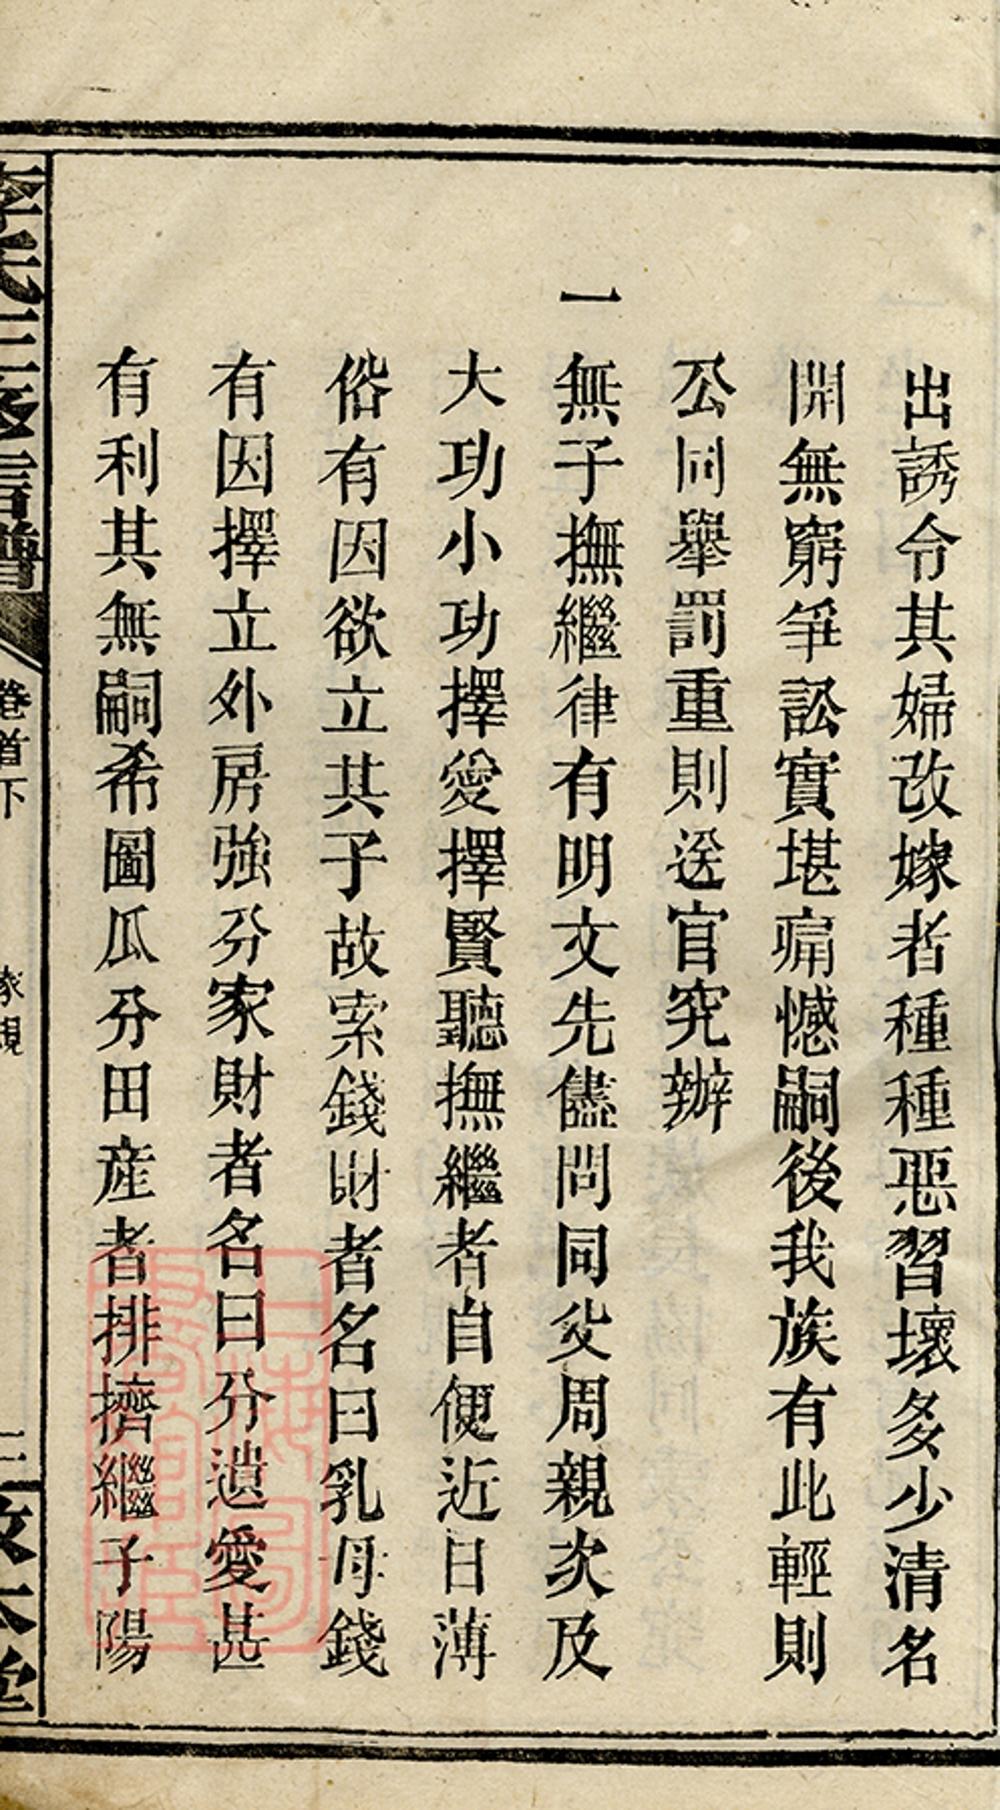 出誘令其婦改嫁者種種惡習壞多少清名
開無窮爭訟實堪痛憾嗣後我族有此輕則
公同舉罰重則送官究辦
一無子撫繼律有明文先儘問同父周親次及
大功小功擇愛擇賢聽撫繼者自便近日薄
俗有因欲立其子故索錢財者名曰乳母錢
有因擇立外房強分家財者名曰分遺愛甚
有利其無嗣希圖瓜分田産者排擠繼子陽
李氏三修言譜
卷首下
家規
二
敦本堂